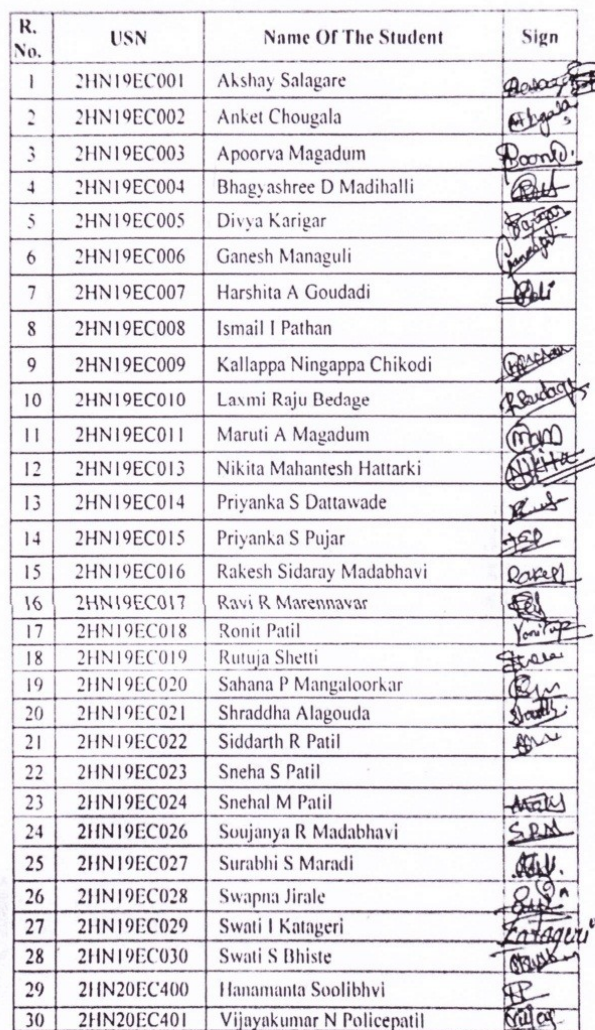 R. No. USN Name Of The Student Sign
1 2HN19EC001 Akshay Salagare
2 2HN19EC002 Anket Chougala
3 2HN19EC003 Apoorva Magadum
4 2HN19EC004 Bhagyashree D Madihalli
5 2HN19EC005 Divya Karigar
6 2HN19EC006 Ganesh Managuli
7 2HN19EC007 Harshita A Goudadi
8 2HN19EC008 Ismail I Pathan
9 2HN19EC009 Kallappa Ningappa Chikodi
10 2HN19EC010 Laxmi Raju Bedage
11 2HN19EC011 Maruti A Magadum
12 2HN19EC013 Nikita Mahantesh Hattarki Nikita
13 2HN19EC014 Priyanka S Dattawade
14 2HN19EC015 Priyanka S Pujar
15 2HN19EC016 Rakesh Sidaray Madabhavi
16 2HN19EC017 Ravi R Marennavar
17 2HN19EC018 Ronit Patil
18 2HN19EC019 Rutuja Shetti
19 2HN19EC020 Sahana P Mangaloorkar
20 2HN19EC021 Shraddha Alagouda
21 2HN19EC022 Siddarth R Patil
22 2HN19EC023 Sneha S Patil
23 2HN19EC024 Snehal M Patil
24 2HN19EC026 Soujanya R Madabhavi S.R.M
25 2HN19EC027 Surabhi S Maradi
26 2HN19EC028 Swapna Jirale
27 2HN19EC029 Swati I Katageri Katageri
28 2HN19EC030 Swati S Bhiste
29 2HN20EC400 Hanamanta Soolibhvi
30 2HN20EC401 Vijayakumar N Policepatil